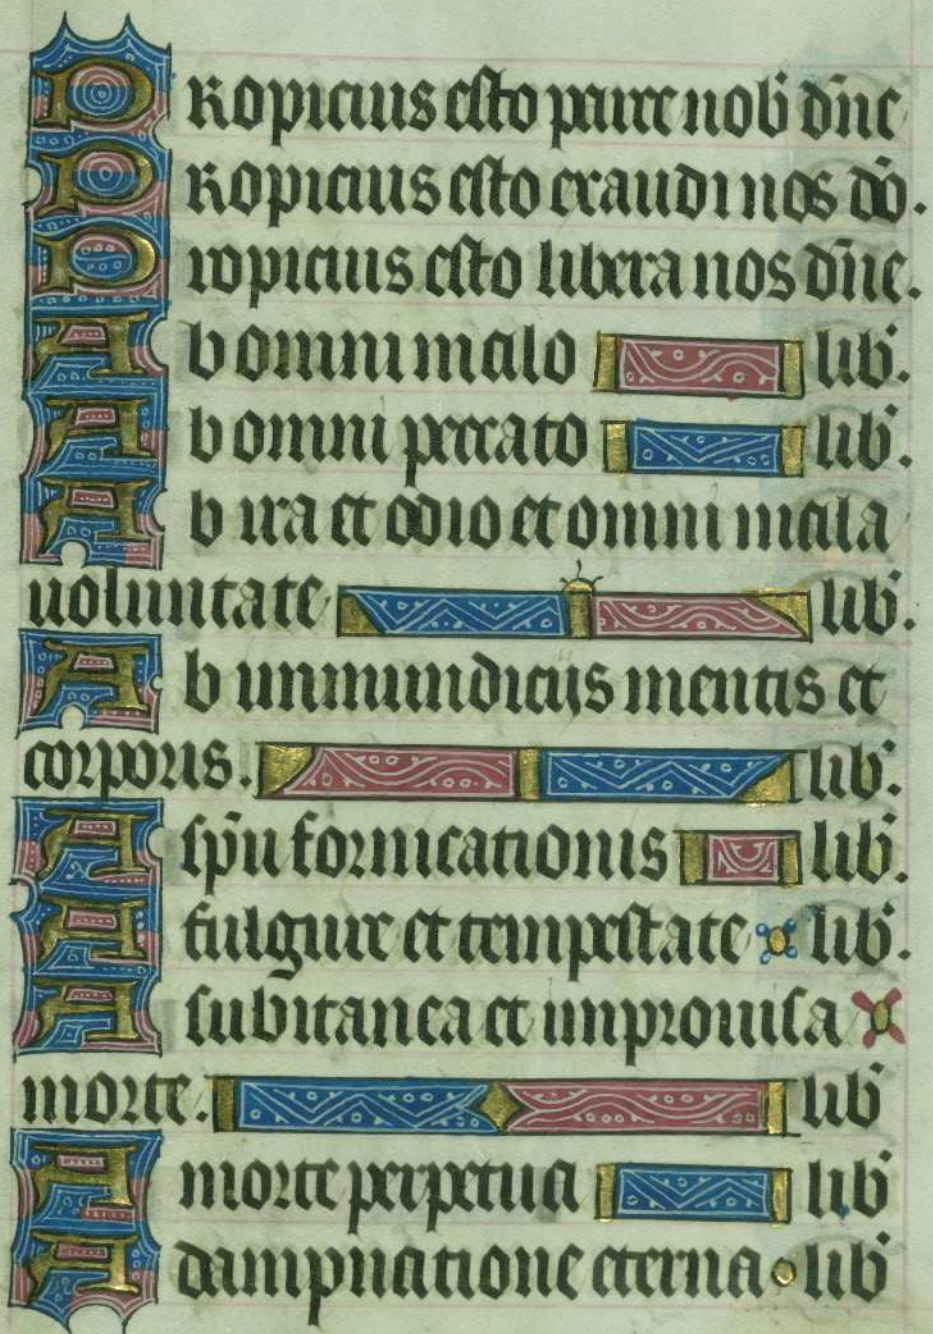 PRopicius esto parce nob̄ dn̄e
PRopicius esto exaudi nos dō.
Propicius esto libera nos dn̄e.
Ab omni malo lib̄.
Ab omni peccato lib̄.
Ab ira et odio et omni mala
uoluntate lib̄.
Ab inmundicijs mentis et
corporis. lib̄.
A sp̄u fornicationis lib̄.
A fulgure et tempestate lib̄.
A subitanea et improuisa
morte. lib̄
A morte perpetua lib̄
A dampnatione eterna lib̄